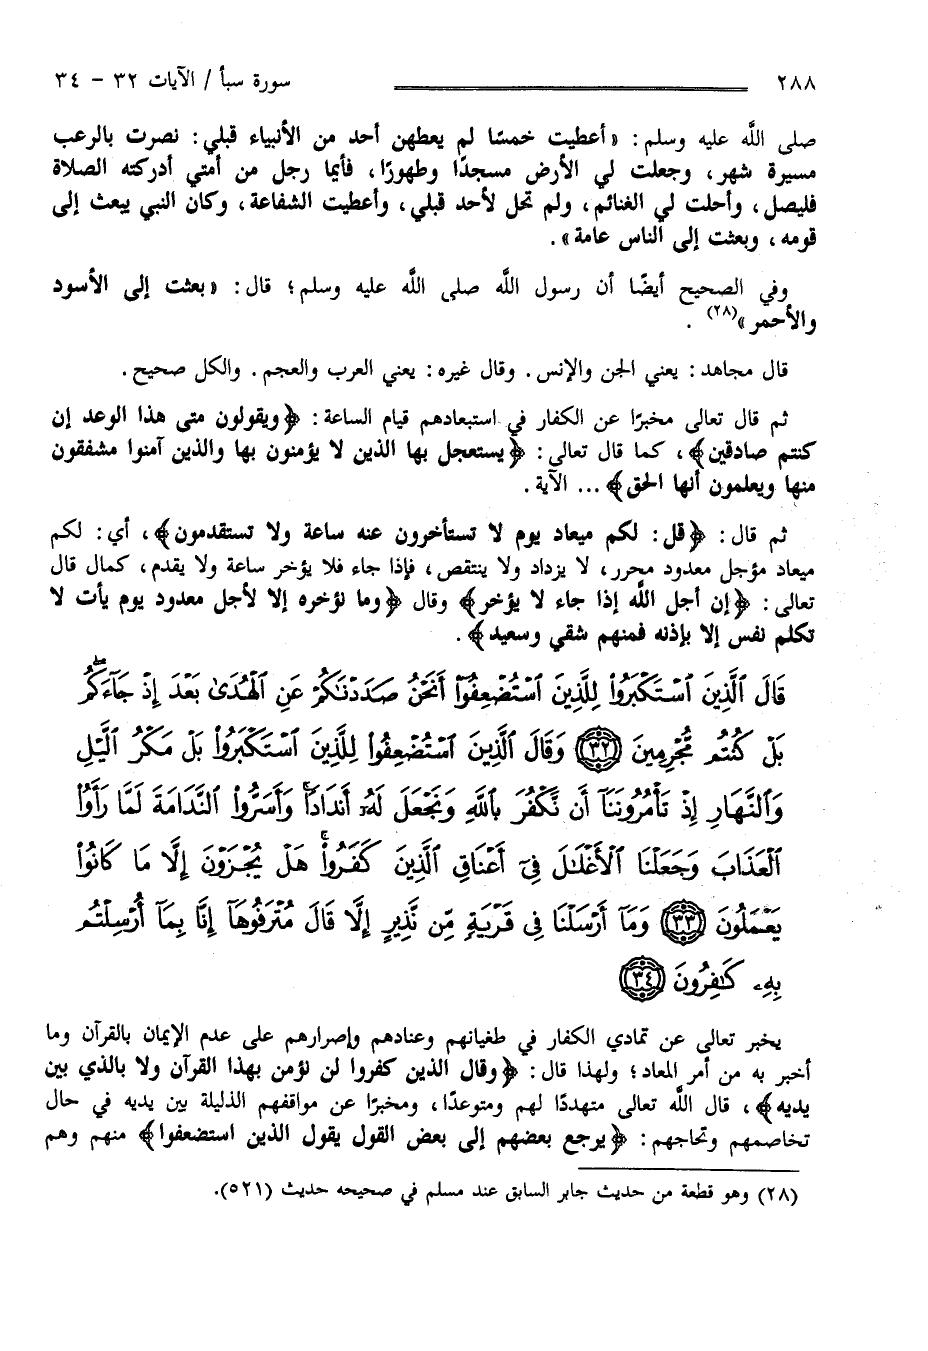 ٢٨٨ سورة سبأ / الآيات ٣٢ - ٣٤
صلى اللَّه عليه وسلم: «أعطيت خمسًا لم يعطهن أحد من الأنبياء قبلي: نصرت بالرعب
مسيرة شهر، وجعلت لي الأرض مسجدًا وطهورًا، فأيما رجل من أمتي أدركته الصلاة
فليصل، وأحلت لي الغنائم، ولم تحل لأحد قبلي، وأعطيت الشفاعة، وكان النبي يبعث إلى
قومه، وبعثت إلى الناس عامة».
وفي الصحيح أيضًا أن رسول اللَّه صلى اللَّه عليه وسلم؛ قال: «بعثت إلى الأسود
والأحمر»(٢٨).
قال مجاهد: يعني الجن والإنس. وقال غيره: يعني العرب والعجم. والكل صحيح.
ثم قال تعالى مخبرًا عن الكفار في استبعادهم قيام الساعة: ﴿ويقولون متى هذا الوعد إن
كنتم صادقين﴾، كما قال تعالى: ﴿يستعجل بها الذين لا يؤمنون بها والذين آمنوا مشفقون
منها ويعلمون أنها الحق﴾... الآية.
ثم قال: ﴿قل: لكم ميعاد يوم لا تستأخرون عنه ساعة ولا تستقدمون﴾، أي: لكم
ميعاد مؤجل معدود محرر، لا يزداد ولا ينتقص، فإذا جاء فلا يؤخر ساعة ولا يقدم، كمال قال
تعالى: ﴿إن أجل اللَّه إذا جاء لا يؤخر﴾ وقال ﴿وما نؤخره إلا لأجل معدود يوم يأت لا
تكلم نفس إلا بإذنه فمنهم شقي وسعيد﴾.
قَالَ ٱلَّذِينَ ٱسۡتَكۡبَرُواْ لِلَّذِينَ ٱسۡتُضۡعِفُوٓاْ أَنَحۡنُ صَدَدۡنَٰكُمۡ عَنِ ٱلۡهُدَىٰ بَعۡدَ إِذۡ جَآءَكُمۖ
بَلۡ كُنتُم مُّجۡرِمِينَ ٣٢ وَقَالَ ٱلَّذِينَ ٱسۡتُضۡعِفُواْ لِلَّذِينَ ٱسۡتَكۡبَرُواْ بَلۡ مَكۡرُ ٱلَّيۡلِ
وَٱلنَّهَارِ إِذۡ تَأۡمُرُونَنَآ أَن نَّكۡفُرَ بِٱللَّهِ وَنَجۡعَلَ لَهُۥٓ أَندَادٗاۚ وَأَسَرُّواْ ٱلنَّدَامَةَ لَمَّا رَأَوُاْ
ٱلۡعَذَابَ وَجَعَلۡنَا ٱلۡأَغۡلَٰلَ فِيٓ أَعۡنَاقِ ٱلَّذِينَ كَفَرُواْۚ هَلۡ يُجۡزَوۡنَ إِلَّا مَا كَانُواْ
يَعۡمَلُونَ ٣٣ وَمَآ أَرۡسَلۡنَا فِي قَرۡيَةٖ مِّن نَّذِيرٍ إِلَّا قَالَ مُتۡرَفُوهَآ إِنَّا بِمَآ أُرۡسِلۡتُم
بِهِۦ كَٰفِرُونَ ٣٤
يخبر تعالى عن تمادي الكفار في طغيانهم وعنادهم وإصرارهم على عدم الإيمان بالقرآن وما
أخبر به من أمر المعاد؛ ولهذا قال: ﴿وقال الذين كفروا لن نؤمن بهذا القرآن ولا بالذي بين
يديه﴾، قال اللَّه تعالى متهددًا لهم ومتوعدًا، ومخبرًا عن مواقفهم الذليلة بين يديه في حال
تخاصمهم وتحاجهم: ﴿يرجع بعضهم إلى بعض القول يقول الذين استضعفوا﴾ منهم وهم
(٢٨) وهو قطعة من حديث جابر السابق عند مسلم في صحيحه حديث (٥٢١).